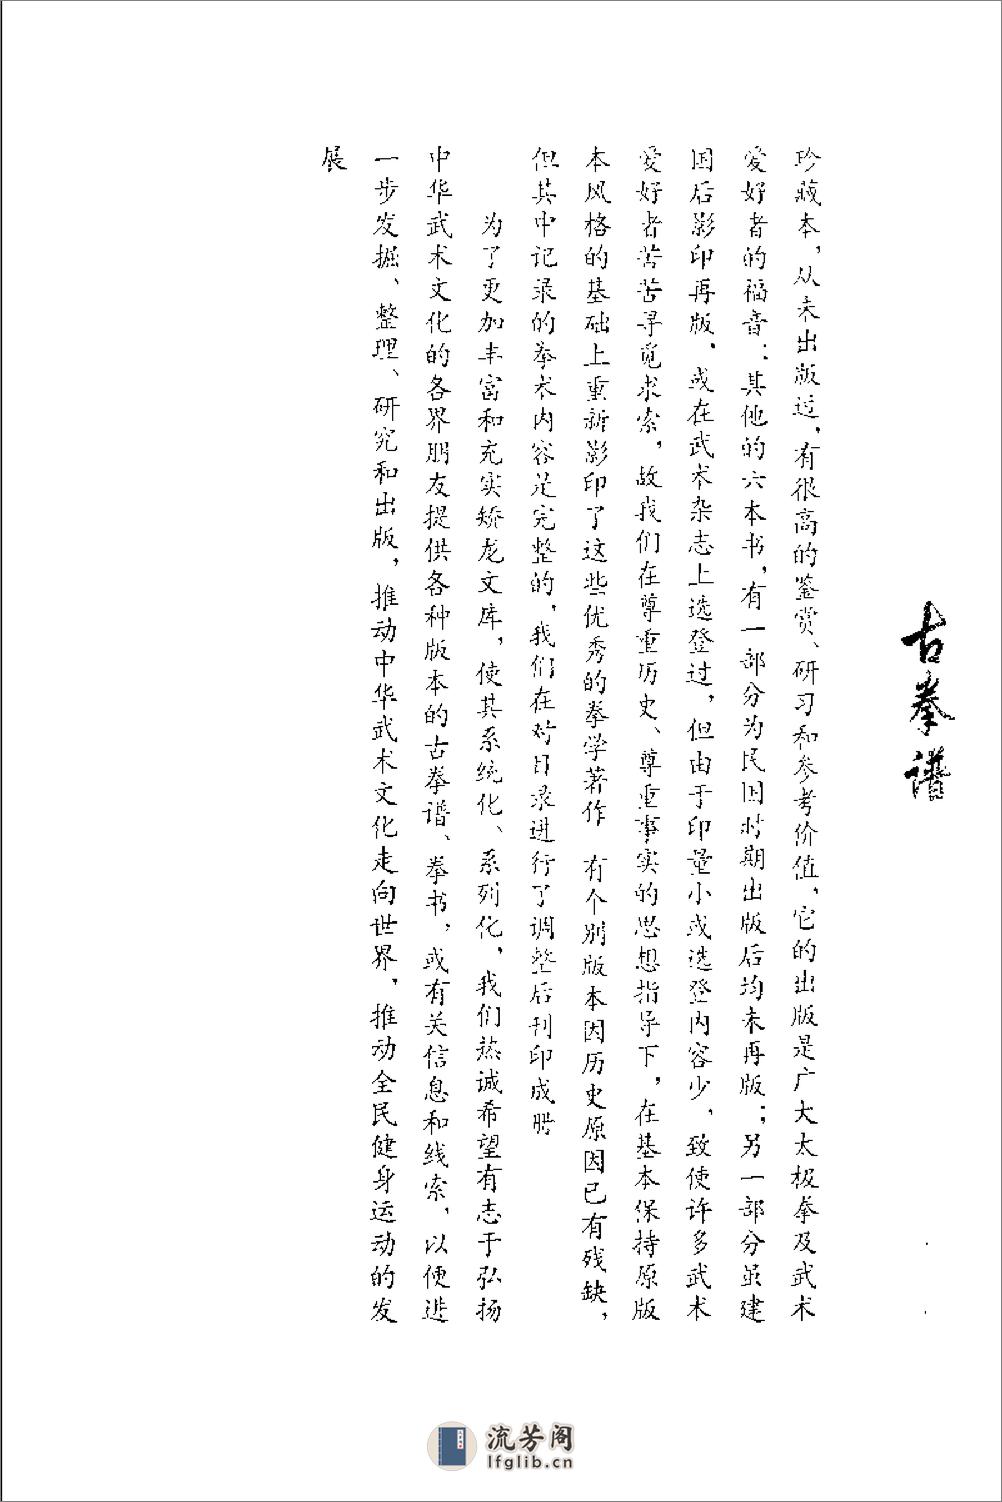 古拳谱
珍藏本，从未出版过，有很高的鉴赏、研习和参考价值，它的出版是广大太极拳及武术
爱好者的福音；其他的六本书，有一部分为民国时期出版后均未再版；另一部分虽建
国后影印再版，或在武术杂志上选登过，但由于印量小或选登内容少，致使许多武术
爱好者苦苦寻觅求索，故我们在尊重历史、尊重事实的思想指导下，在基本保持原版
本风格的基础上重新影印了这些优秀的拳学著作 有个别版本因历史原因已有残缺，
但其中记录的拳术内容是完整的，我们在对目录进行了调整后刊印成册
为了更加丰富和充实矫龙文库，使其系统化、系列化，我们热诚希望有志于弘扬
中华武术文化的各界朋友提供各种版本的古拳谱、拳书，或有关信息和线索，以便进
一步发掘、整理、研究和出版，推动中华武术文化走向世界，推动全民健身运动的发
展
流芳阁
lfglib.cn